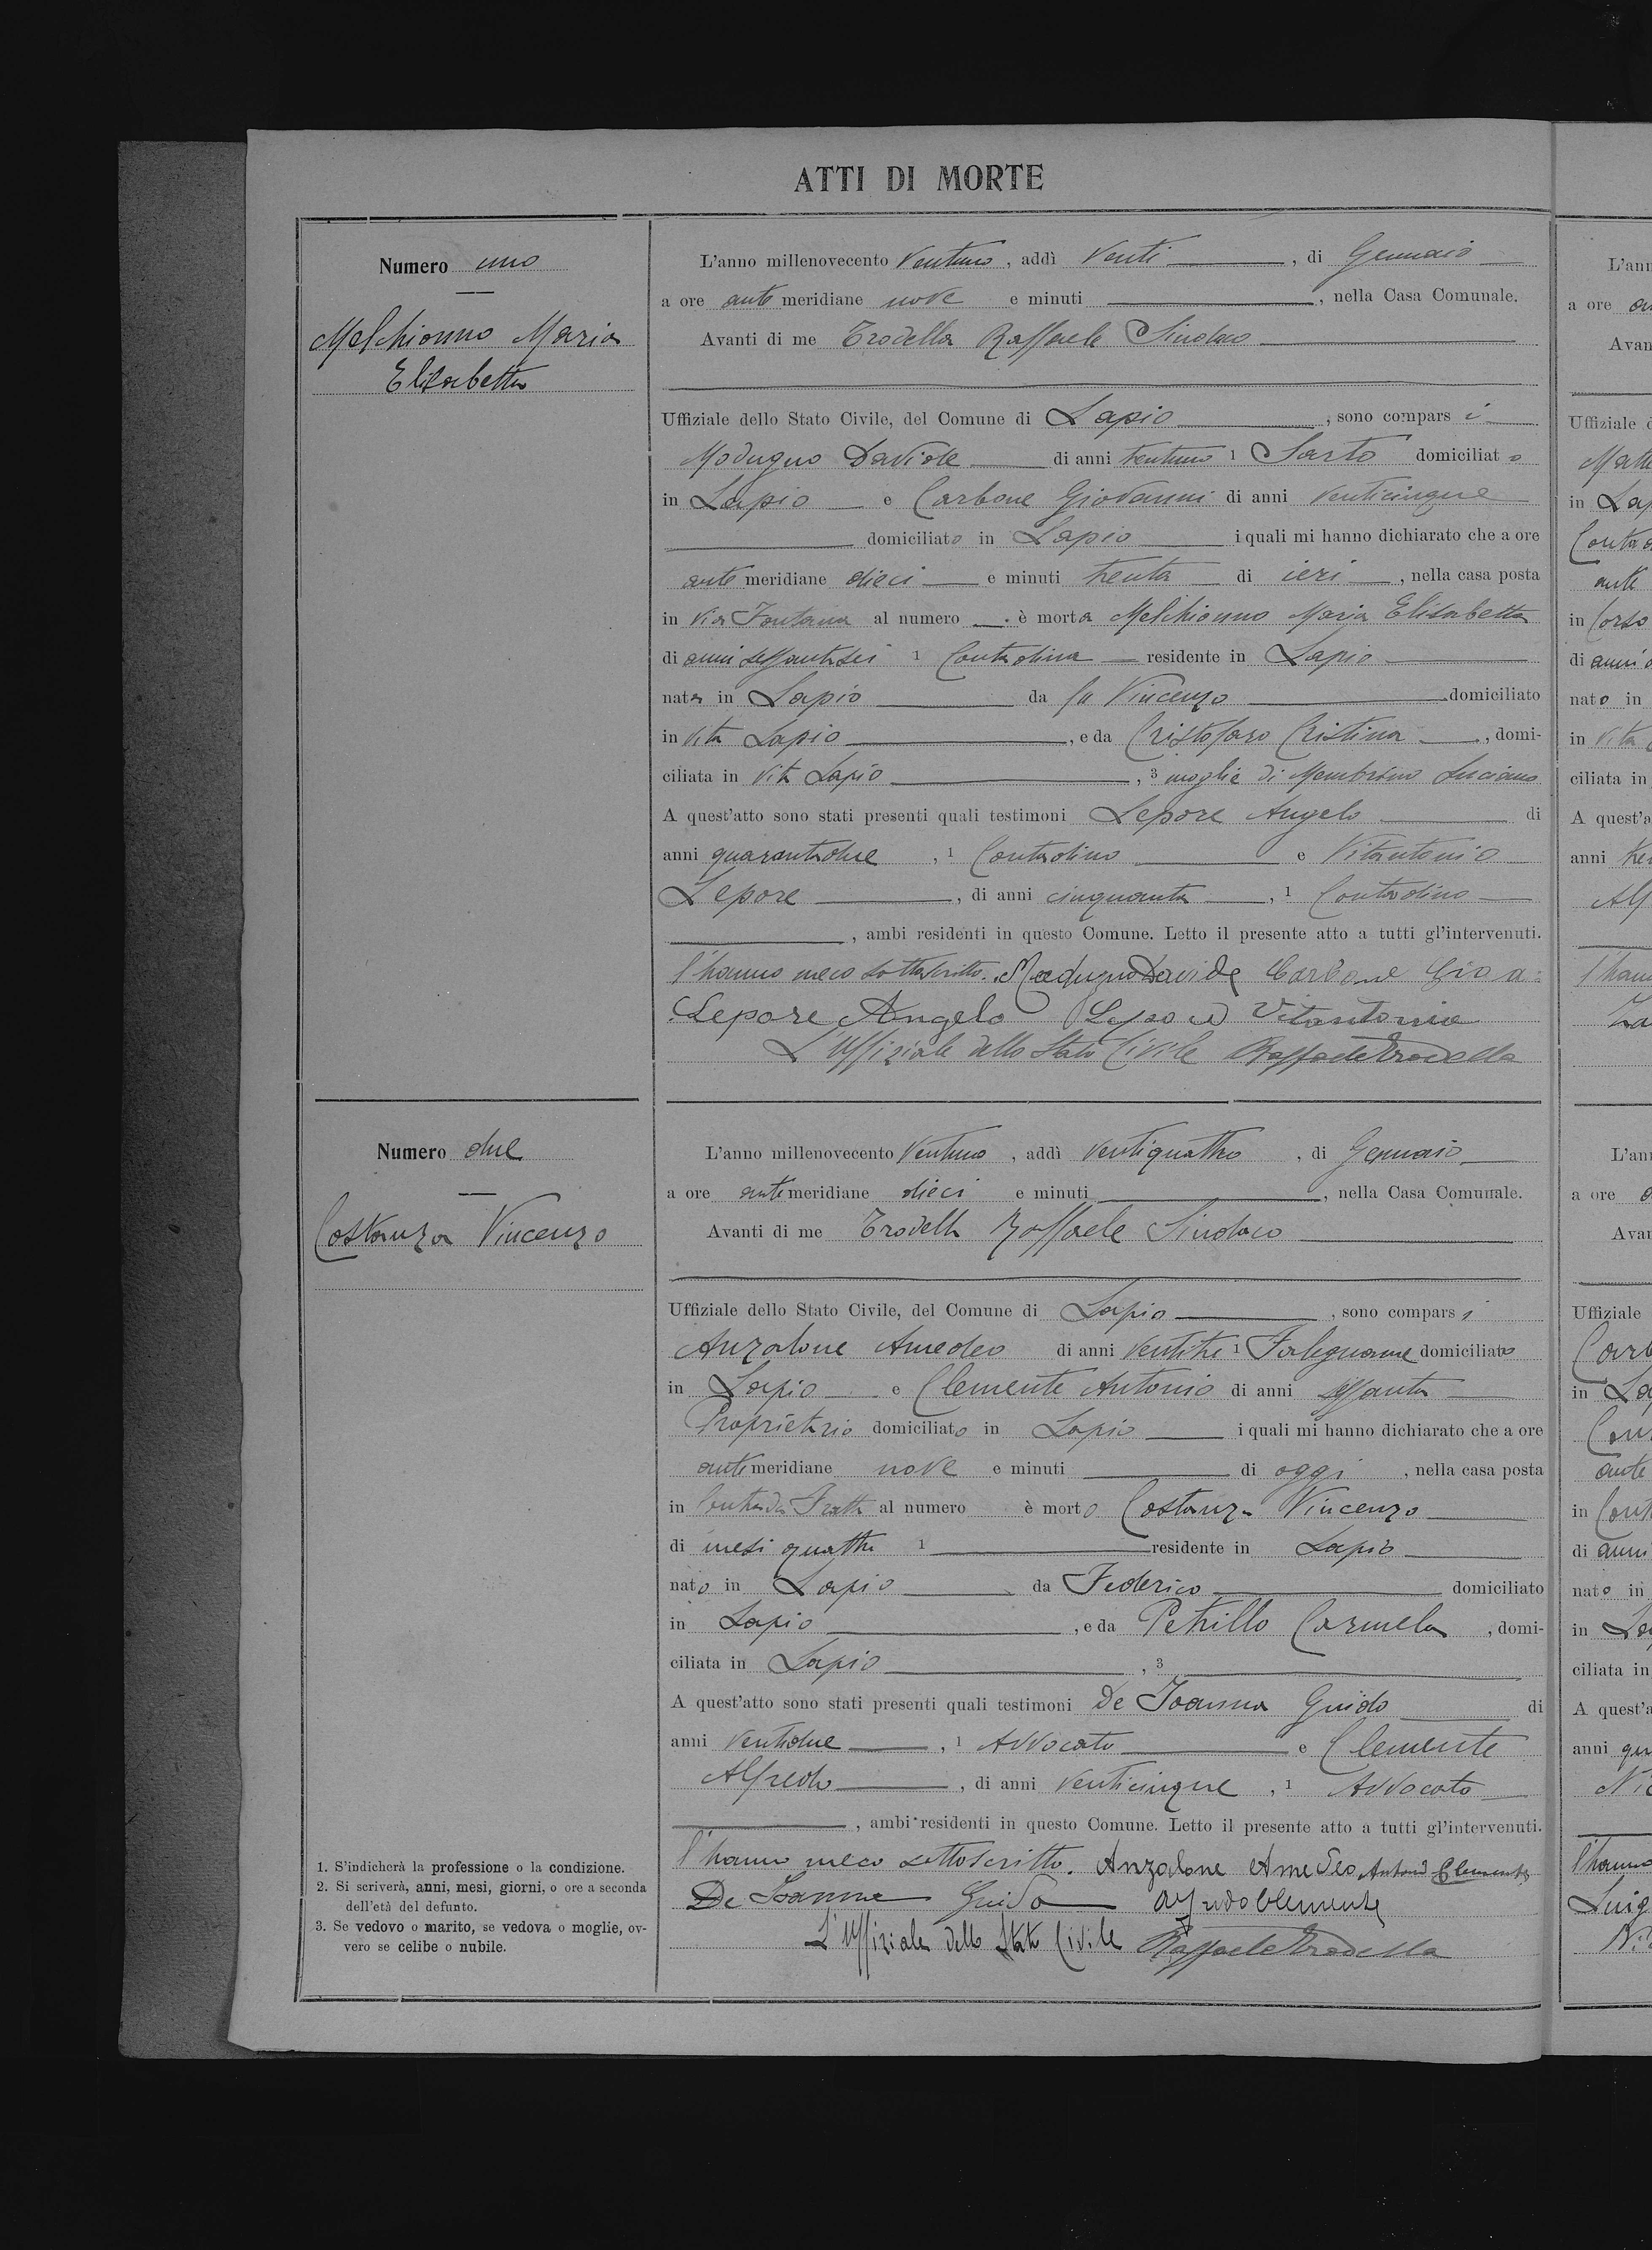 ATTI DI MORTE
Numero uno
Melchionno Maria
Elisabetta
L'anno millenovecento ventuno, addì venti, di Gennaio
a ore antemeridiane nove e minuti, nella Casa Comunale.
Avanti di me Trodella Raffaele Sindaco
Uffiziale dello Stato Civile, del Comune di Lapio, sono comparsi
Modugno Davide di anni trentuno 1 Sarto domiciliato
in Lapio e Carbone Giovanni di anni venticinque
domiciliato in Lapio i quali mi hanno dichiarato che a ore
antemeridiane dieci e minuti trenta di ieri, nella casa posta
in Via Fontana al numero è morta Melchionno Maria Elisabetta
di anni sessantasei 1 Contadina residente in Lapio
nata in Lapio da fu Vincenzo domiciliato
in vita Lapio, e da Cristofaro Cristina, domi-
ciliata in vita Lapio, 3 moglie di Luciano
A quest'atto sono stati presenti quali testimoni Lepore Angelo di
anni quarantadue, 1 Contadino e Vitantonio
Lepore, di anni cinquanta, 1 Contadino
, ambi residenti in questo Comune. Letto il presente atto a tutti gl'intervenuti.
l'hanno meco sottoscritto. Modugno Davide Carbone Gioa
Lepore Angelo Lepore Vitantonio
L'Uffiziale dello Stato Civile Raffaele Trodella
Numero due
Costanza Vincenzo
L'anno millenovecento ventuno, addì ventiquattro, di Gennaio
a ore antemeridiane dieci e minuti, nella Casa Comunale.
Avanti di me Trodella Raffaele Sindaco
Uffiziale dello Stato Civile, del Comune di Lapio, sono comparsi
Anzalone Amedeo di anni ventitre 1 Falegname domiciliato
in Lapio e Clemente Antonio di anni sessanta
Proprietario domiciliato in Lapio i quali mi hanno dichiarato che a ore
antemeridiane nove e minuti di oggi, nella casa posta
in Contrada Fratte al numero è morto Costanza Vincenzo
di mesi quattro 1 residente in Lapio
nato in Lapio da Federico domiciliato
in Lapio, e da Petrillo Carmela, domi-
ciliata in Lapio, 3
A quest'atto sono stati presenti quali testimoni De Joanna Guido di
anni ventidue, 1 Avvocato e Clemente
Alfredo, di anni venticinque, 1 Avvocato
, ambi residenti in questo Comune. Letto il presente atto a tutti gl'intervenuti.
l'hanno meco sottoscritto. Anzalone Amedeo Antonio Clemente
De Joanna Guido Alfredo Clemente
L'Uffiziale dello Stato Civile Raffaele Trodella
1. S'indicherà la professione o la condizione.
2. Si scriverà, anni, mesi, giorni, o ore a seconda
dell'età del defunto.
3. Se vedovo o marito, se vedova o moglie, ov-
vero se celibe o nubile.